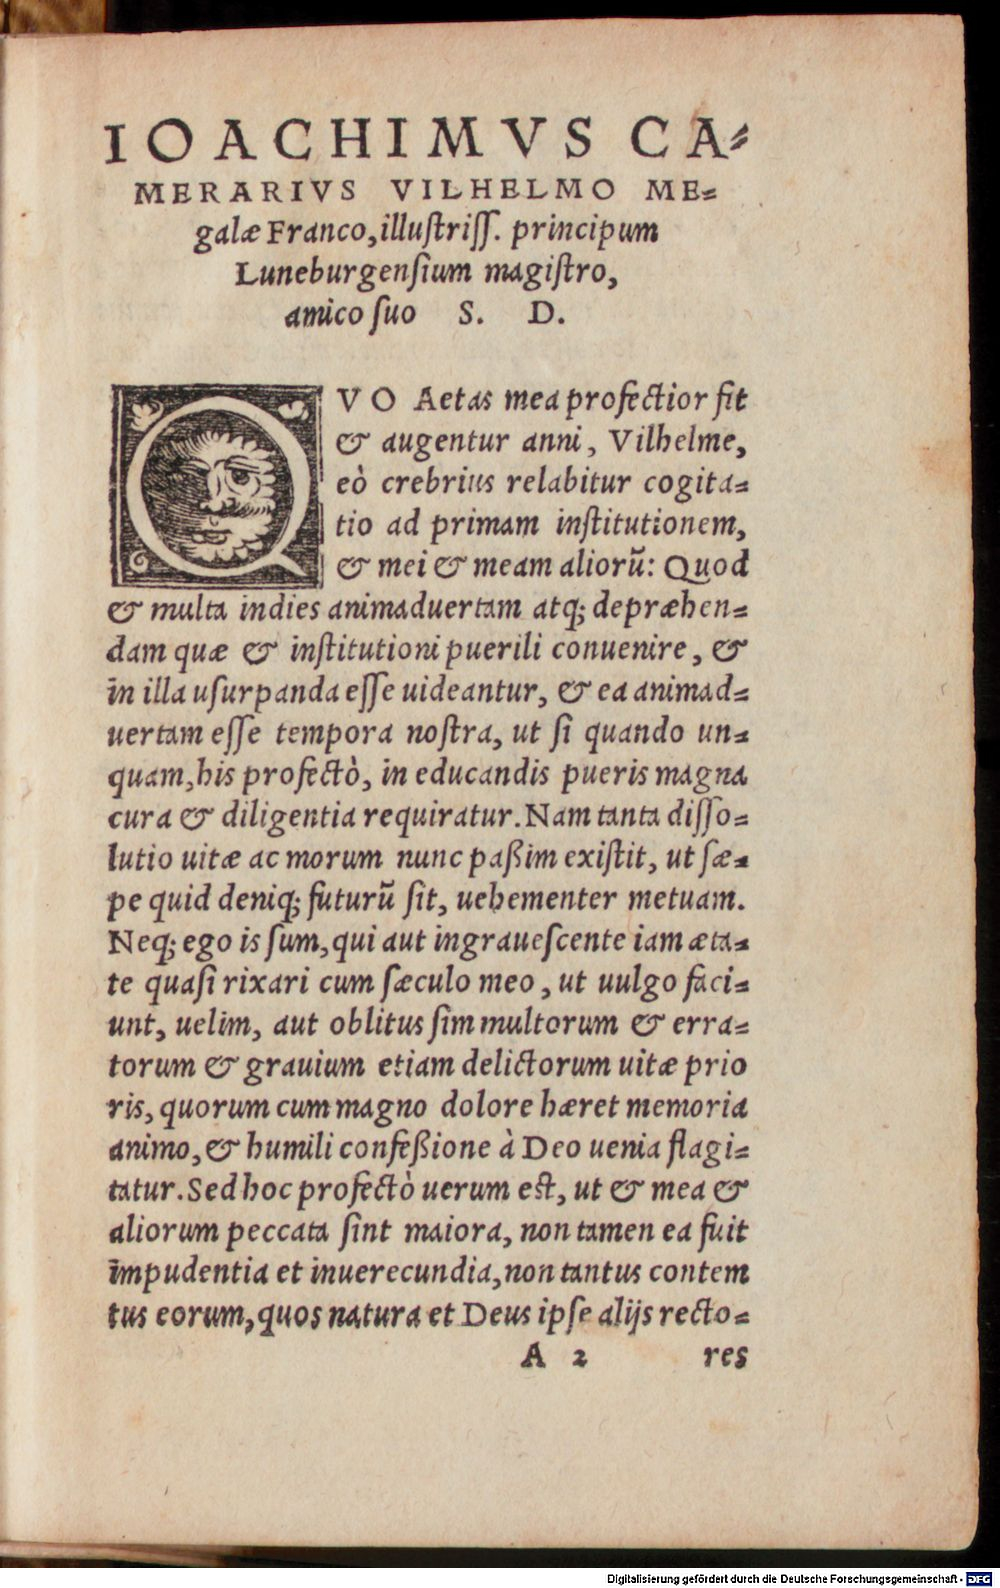 IOACHIMVS CA-
MERARIVS VILHELMO ME-
galæ Franco, illustriss. principum
Luneburgensium magistro,
amico suo S. D.
QVO Aetas mea profectior fit
& augentur anni, Vilhelme,
eò crebrius relabitur cogita-
tio ad primam institutionem,
& mei & meam aliorũ: Quod
& multa indies animaduertam atq; depræhen-
dam quæ & institutioni puerili conuenire, &
in illa usurpanda esse uideantur, & ea animad-
uertam esse tempora nostra, ut si quando un-
quam, his profectò, in educandis pueris magna
cura & diligentia requiratur. Nam tanta disso-
lutio uitæ ac morum nunc paßim existit, ut sæ-
pe quid deniq; futurũ sit, uehementer metuam.
Neq; ego is sum, qui aut ingrauescente iam æta-
te quasi rixari cum sæculo meo, ut uulgo faci-
unt, uelim, aut oblitus sim multorum & erra-
torum & grauium etiam delictorum uitæ prio
ris, quorum cum magno dolore hæret memoria
animo, & humili confeßione à Deo uenia flagi-
tatur. Sed hoc profectò uerum est, ut & mea &
aliorum peccata sint maiora, non tamen ea fuit
impudentia et inuerecundia, non tantus contem
tus eorum, quos natura et Deus ipse alijs recto-
A 2 res
Digitalisierung gefördert durch die Deutsche Forschungsgemeinschaft - DFG